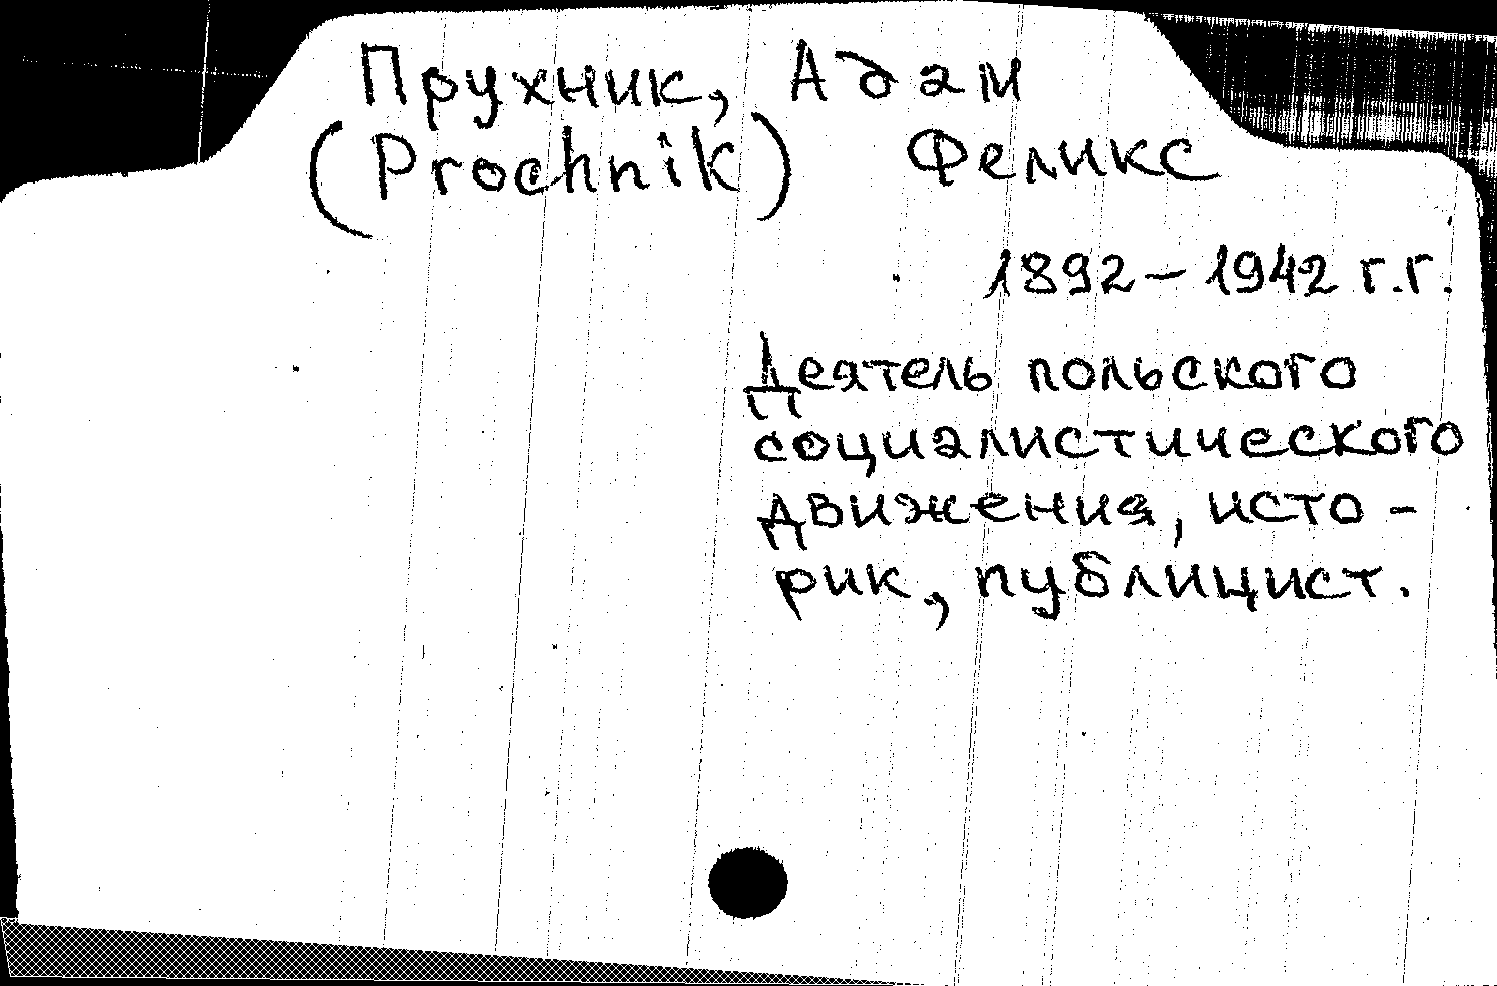 Прухник, Адам
(Prochnik) Феликс
1892 – 1942 г.г.
Деятель польского
социалистического
движения, исто-
рик, публицист.